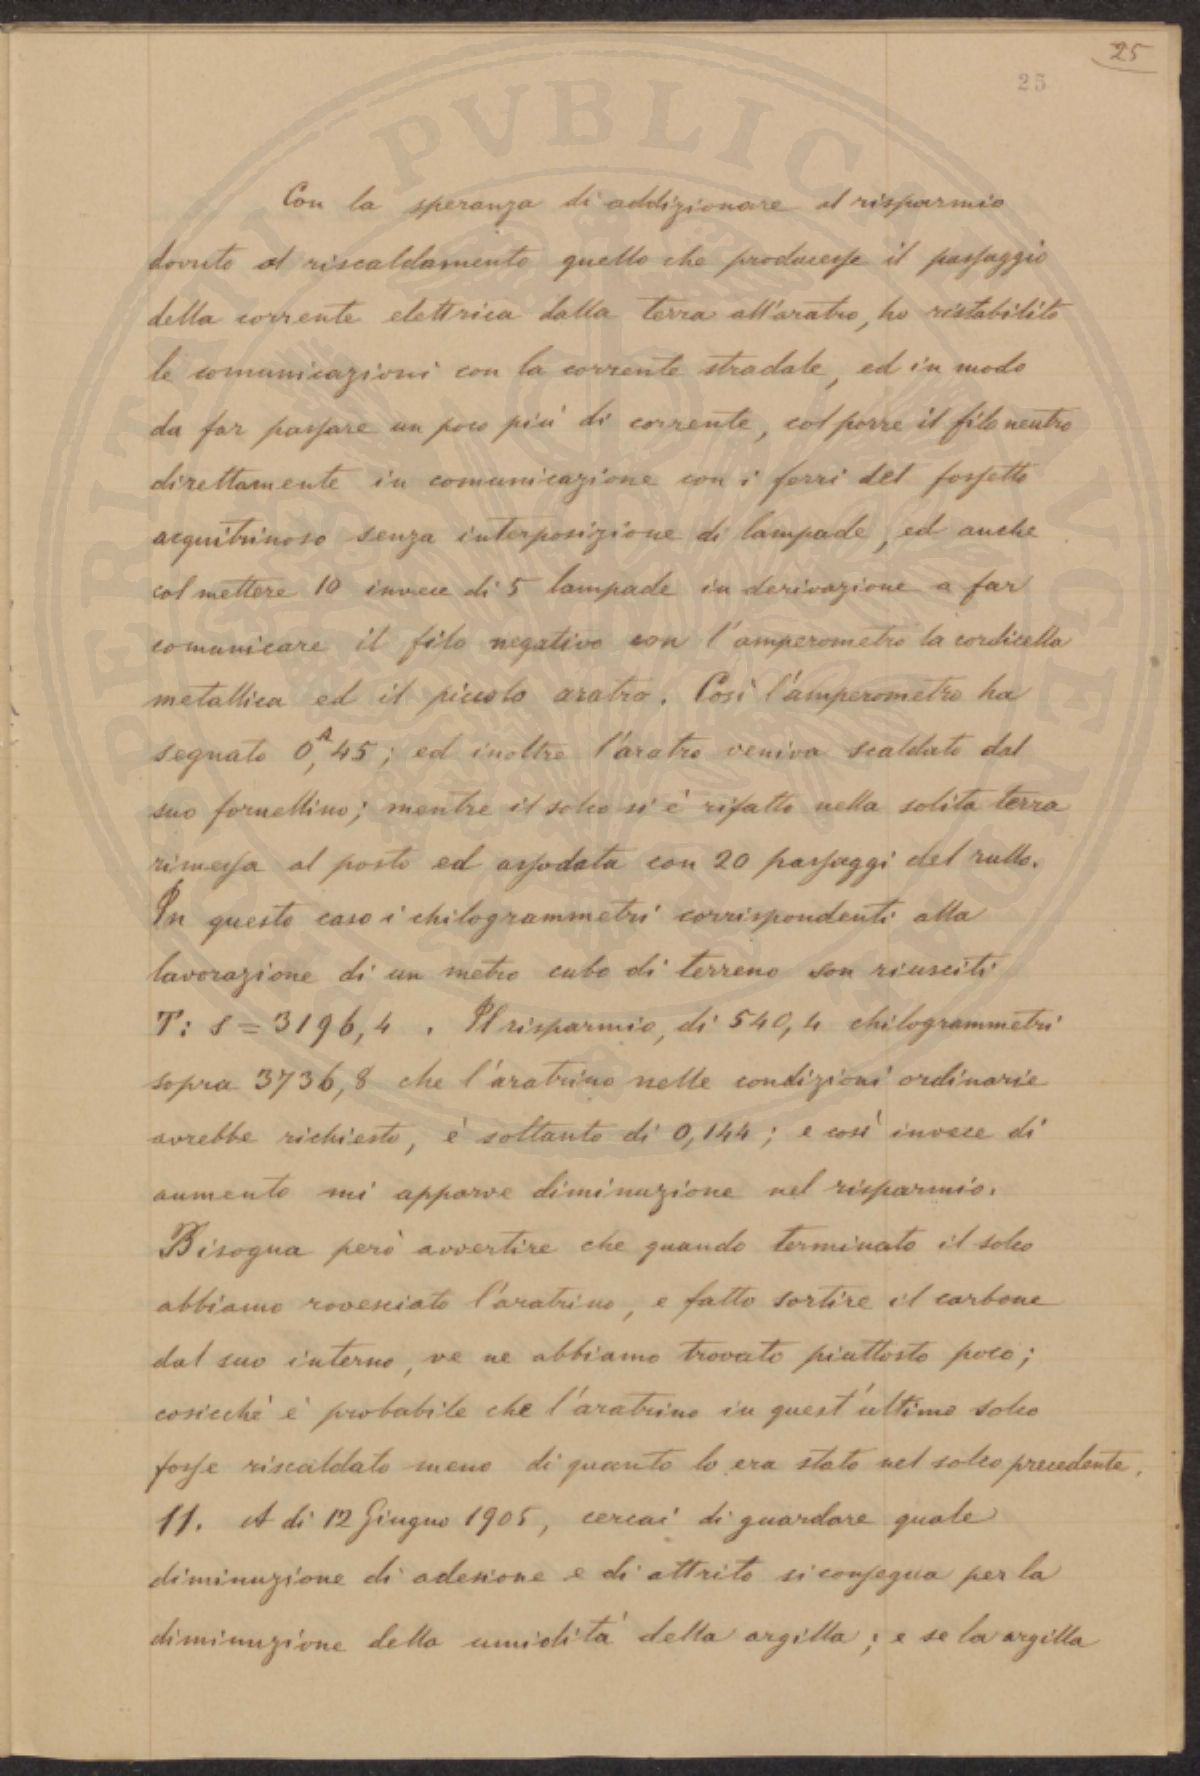 25
25
Con la speranza di addizionare al risparmio
dovuto al riscaldamento quello che producesse il passaggio
della corrente elettrica dalla terra all'aratro, ho ristabilito
le comunicazioni con la corrente stradale, ed in modo
da far passare un poco più di corrente, col porre il filo neutro
direttamente in comunicazione con i ferri del fossetto
acquitrinoso senza interposizione di lampade, ed anche
col mettere 10 invece di 5 lampade in derivazione a far
comunicare il filo negativo con l'amperometro la cordicella
metallica ed il piccolo aratro. Così l'amperometro ha
segnato 0,ᴬ45; ed inoltre l'aratro veniva scaldato dal
suo fornellino; mentre il solco si è rifatto nella solita terra
rimessa al posto ed assodata con 20 passaggi del rullo.
In questo caso i chilogrammetri corrispondenti alla
lavorazione di un metro cubo di terreno son riusciti
T: s = 3196,4. Il risparmio, di 540,4 chilogrammetri
sopra 3736,8 che l'aratrino nelle condizioni ordinarie
avrebbe richiesto, è soltanto di 0,144; e così invece di
aumento mi apparve diminuzione nel risparmio.
Bisogna però avvertire che quando terminato il solco
abbiamo rovesciato l'aratrino, e fatto sortire il carbone
dal suo interno, ve ne abbiamo trovato piuttosto poco;
cosicché è probabile che l'aratrino in quest'ultimo solco
fosse riscaldato meno di quanto lo era stato nel solco precedente.
11. A di 12 Giugno 1905, cercai di guardare quale
diminuzione di adesione e di attrito si consegua per la
diminuzione della umidità della argilla; e se la argilla